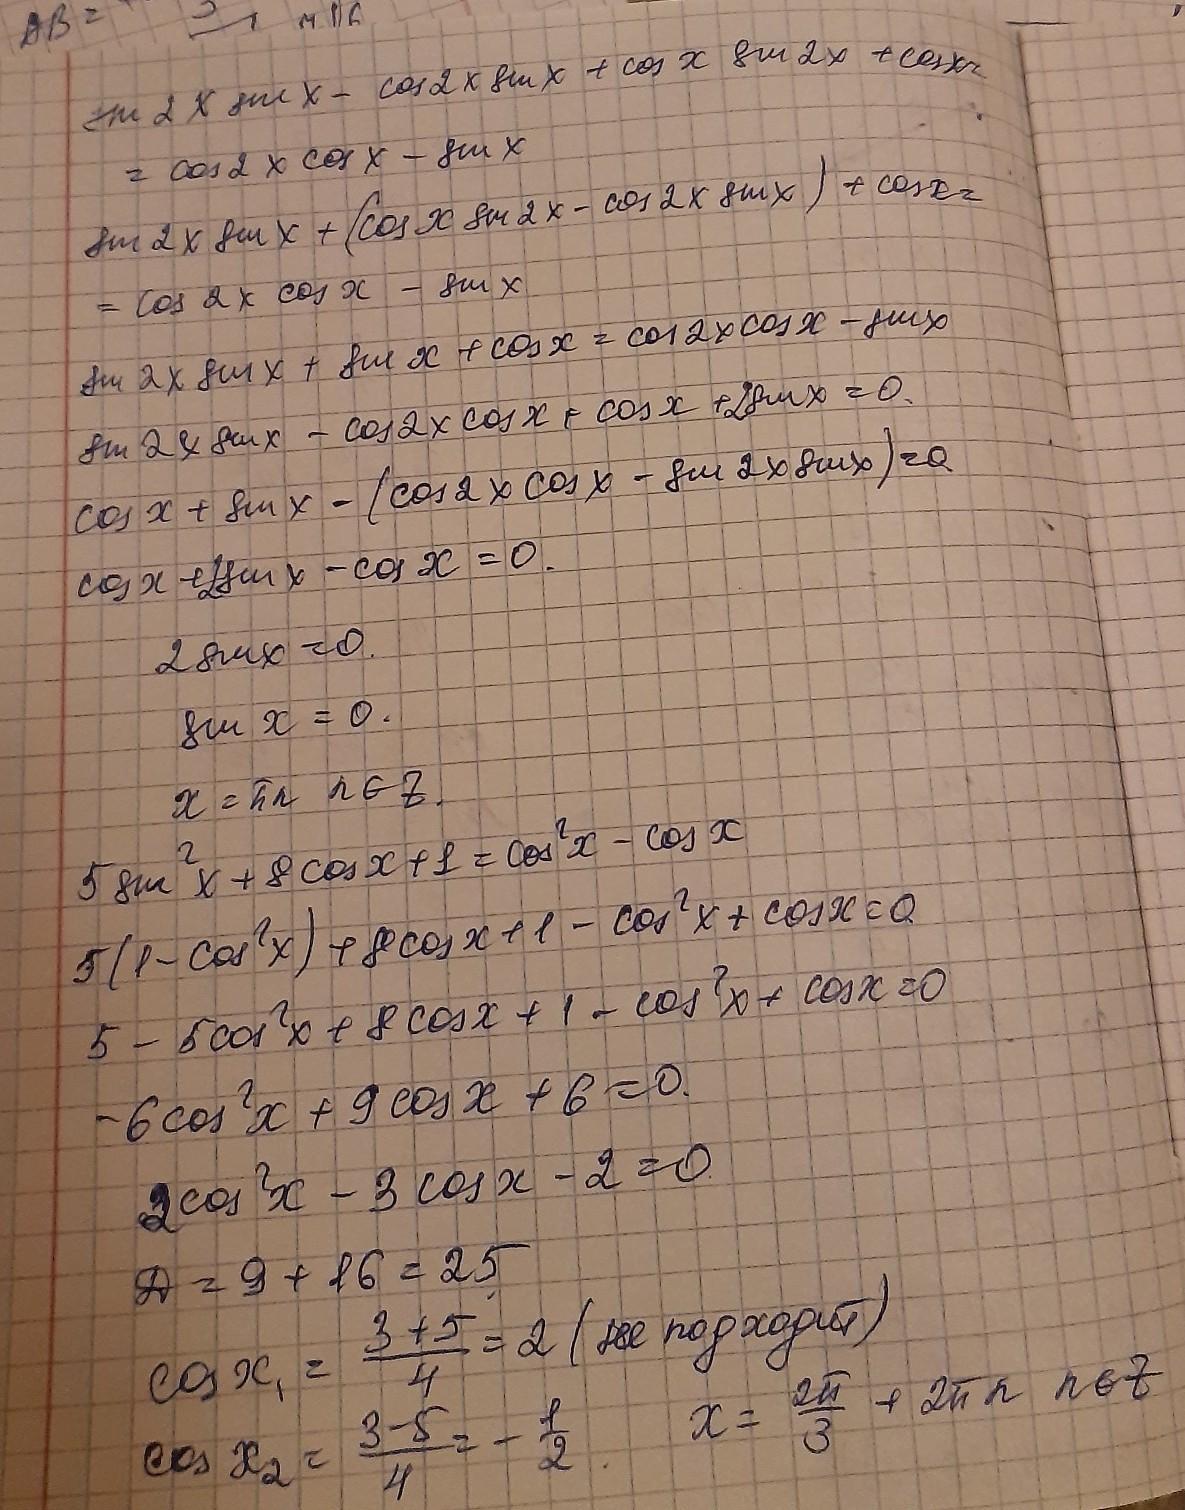 AB =
sin 2x sin x - cos 2x sin x + cos x sin 2x + cos x =
= cos 2x cos x - sin x
sin 2x sin x + (cos x sin 2x - cos 2x sin x) + cos x =
= cos 2x cos x - sin x
sin 2x sin x + sin x + cos x = cos 2x cos x - sin x
sin 2x sin x - cos 2x cos x + cos x + 2 sin x = 0.
cos x + sin x - (cos 2x cos x - sin 2x sin x) = 0
cos x + 2 sin x - cos x = 0.
2 sin x = 0.
sin x = 0.
x = πn n ∈ Z.
5 sin² x + 8 cos x + 1 = cos² x - cos x
5(1 - cos² x) + 8 cos x + 1 - cos² x + cos x = 0
5 - 5 cos² x + 8 cos x + 1 - cos² x + cos x = 0
-6 cos² x + 9 cos x + 6 = 0.
2 cos² x - 3 cos x - 2 = 0
D = 9 + 16 = 25
cos x₁ = (3+5)/4 = 2 (не подходит)
cos x₂ = (3-5)/4 = -1/2. x = 2π/3 + 2πn n ∈ Z